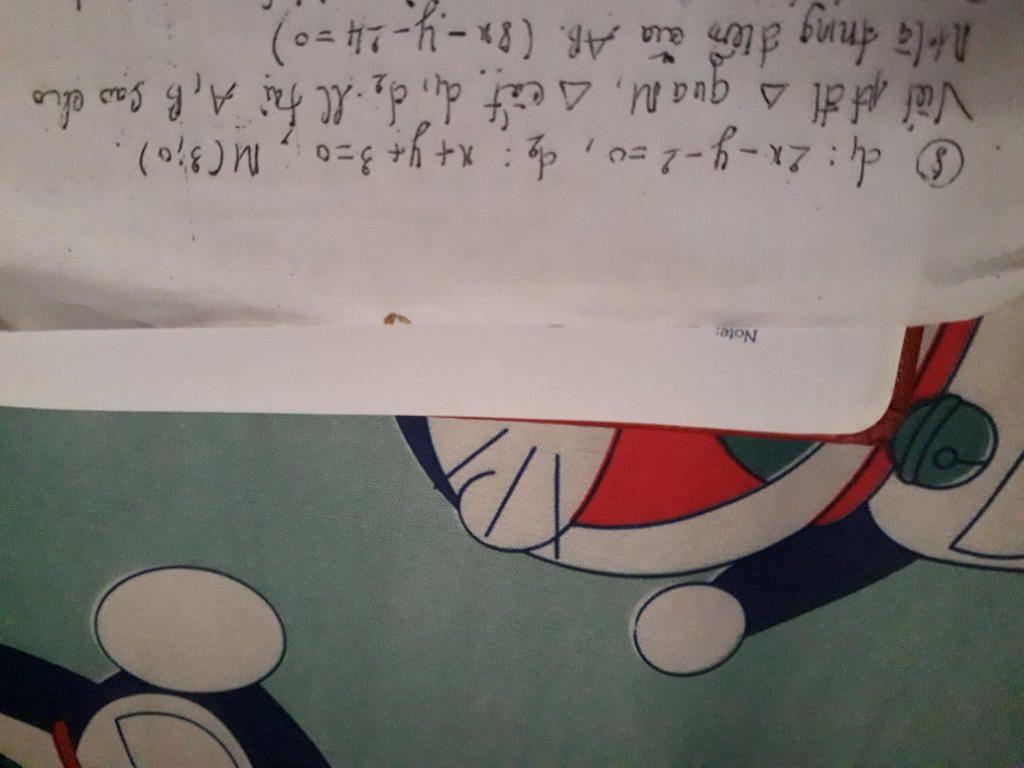 ⑧ d₁: 2x-y-2=0, d₂: x+y+3=0; M(3;0).
Viết ptđt Δ qua M, Δ cắt d₁, d₂ lll tại A, B sao cho
M là trung điểm của AB. (8x-y-24=0)
Note: